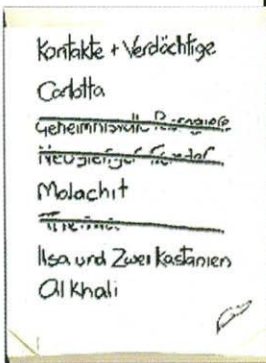 Kontakte + Verdächtige
Carlotta
Geheimnisvolle
Neugieriger
Malachit
Ilsa und Zwei Kastanien
Al Khali